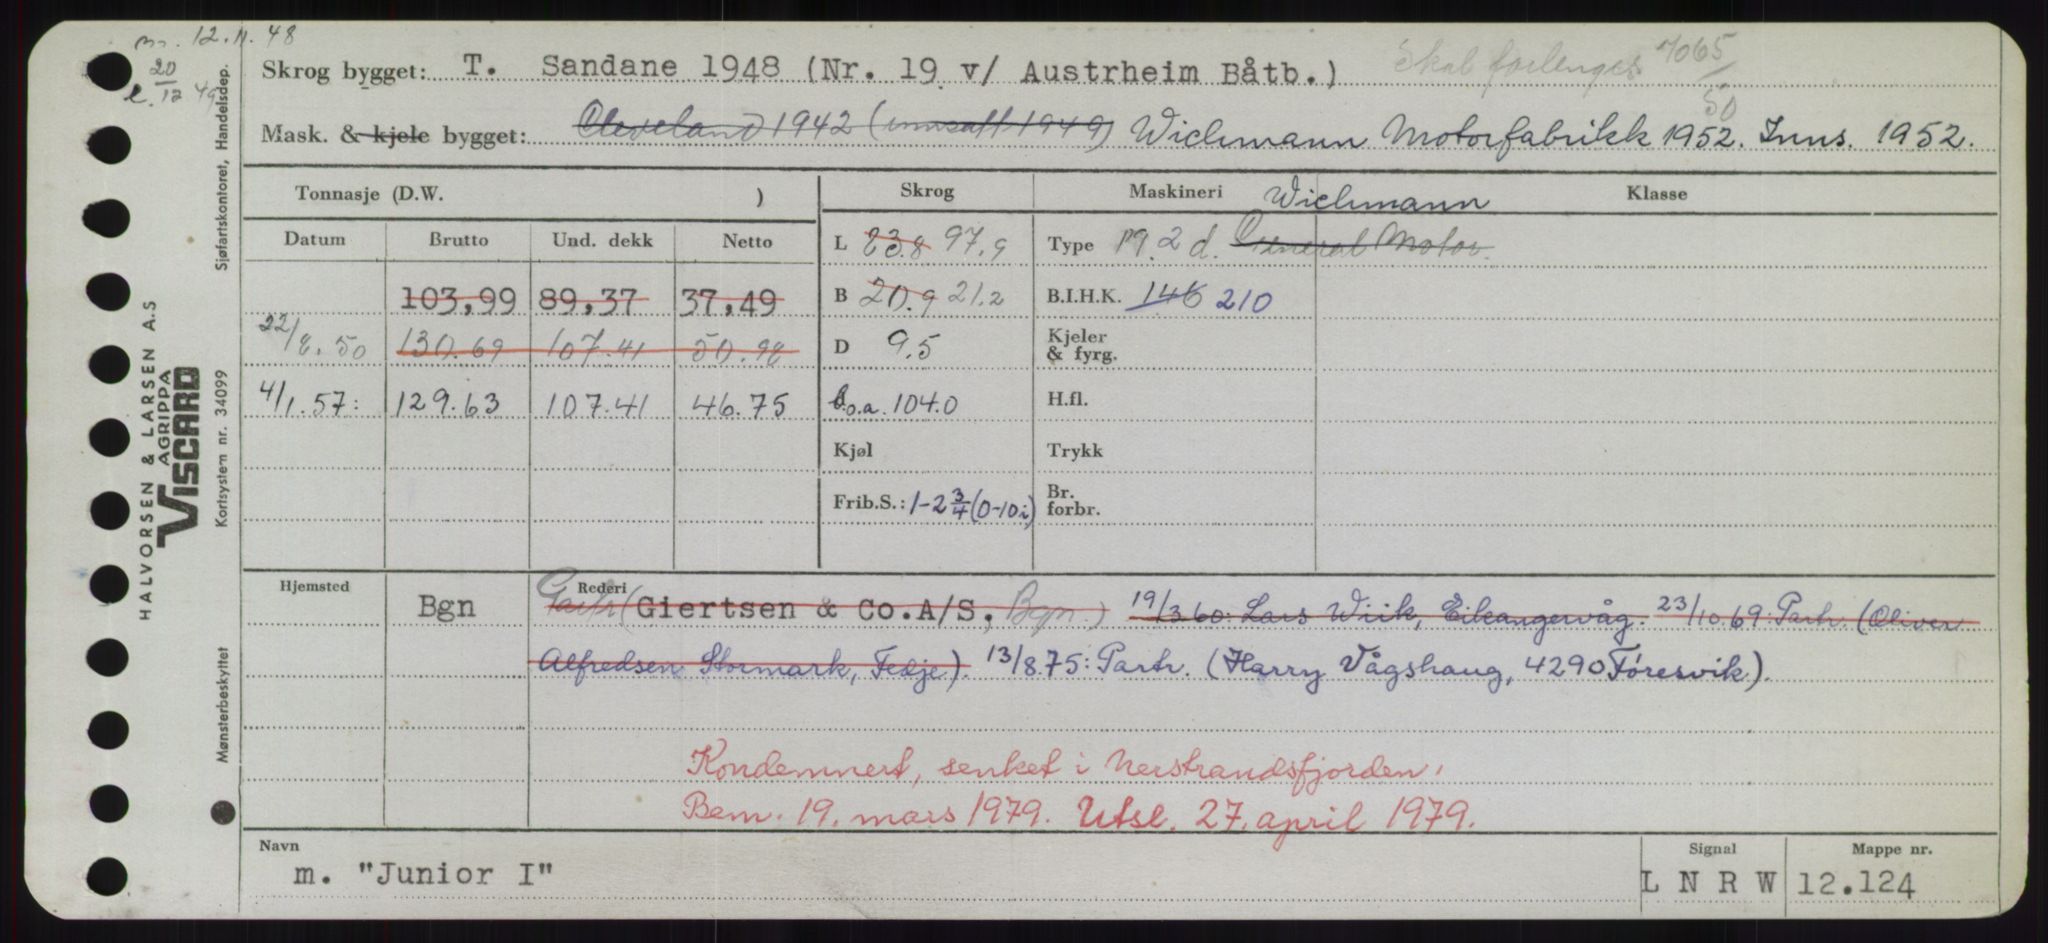 m. 12.11.48
20/12 49
Skrog bygget: T. Sandane 1948 (Nr. 19 v/ Austrheim Båtb.)
Skal forlenges 7065/50
Mask. & kjele bygget: Cleveland 1942 (innsatt 1949) Wichmann Motorfabrikk 1952. Inns. 1952.
Tonnasje (D.W. ) Skrog Maskineri Klasse
Wichmann
Datum Brutto Und. dekk Netto L 83.8 97.9 Type 2 d. General Motor.
103,99 89,37 37,49 B 20.9 21.2 B.I.H.K. 146 210
22/8.50 130.69 107.41 50.98 D 9.5 Kjeler & fyrg.
4/1.57: 129.63 107.41 46.75 l.o.a. 104.0 H.fl.
Kjøl Trykk
Frib.S.: 1-2 3/4 (0-10i) Br. forbr.
Hjemsted Rederi
Bgn Partr (Giertsen & Co.A/S, Bgn.) 19/3 60: Lars Wiik, Eikangervåg. 23/10.69: Partr. (Oliver
Alfredsen Stormark, Fedje). 13/8.75: Partr. (Harry Vågshaug, 4290 Føresvik).
Kondemnert, senket i Nerstrandsfjorden.
Bem. 19. mars 1979. Utsl. 27. april 1979.
Navn Signal Mappe nr.
m. "Junior I" L N R W 12.124
HALVORSEN & LARSEN A.S
AGRIPPA
VISCARD
Sjøfartskontoret, Handelsdep.
Kortsystem nr. 34099
Mønsterbeskyttet